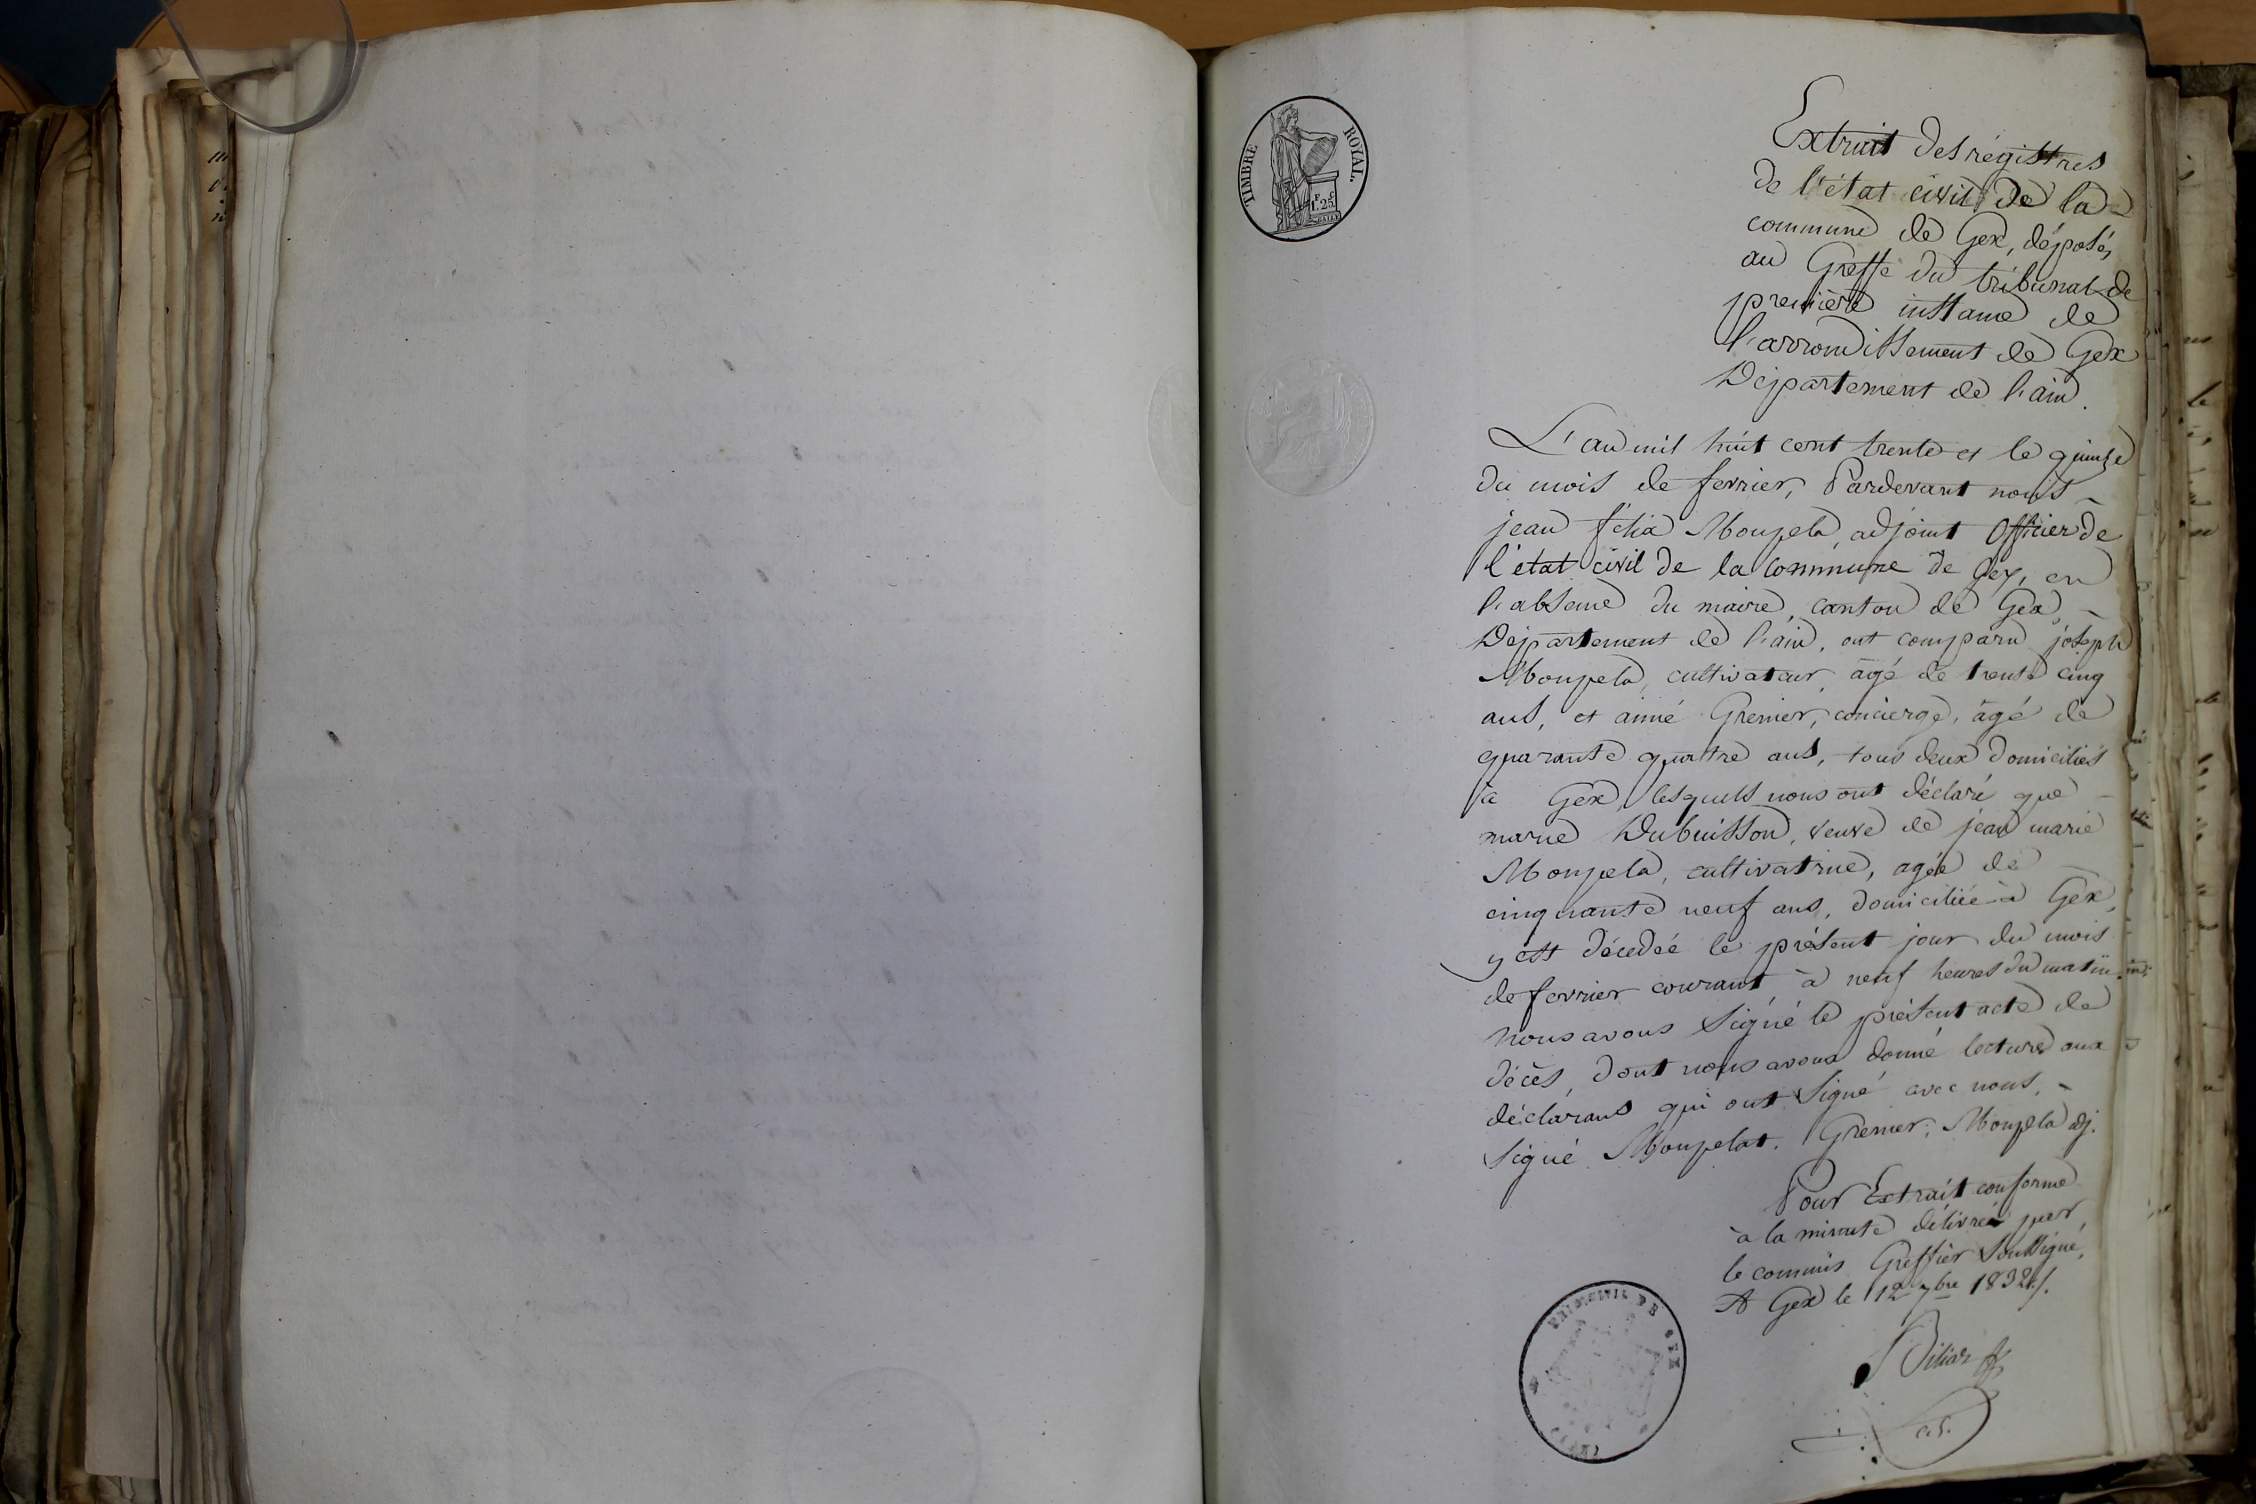 TIMBRE ROYAL.
1.25
Extrait des régistres
de l'état civil de la
commune de Gex, déposés
au Greffe du tribunal de
première instance de
l'arrondissement de Gex
Département de l'ain.
L'an mil huit cent trente et le quinze
du mois de fevrier, Pardevant nous
jean félix Moupela, adjoint Officier de
l'état civil de la Commune de Gex, en
l'absence du maire, canton de Gex,
Département de l'ain, ont comparu joseph
Moupela, cultivateur, âgé de trente cinq
ans, et aimé Grenier, concierge, âgé de
quarante quatre ans, tous deux domiciliés
à Gex, lesquels nous ont déclaré que
marie Dubuisson, veuve de jean marie
Moupela, cultivatrice, agée de
cinquante neuf ans, domiciliée à Gex,
y est décedée le présent jour du mois
de fevrier courant à neuf heures du matin.
Nous avons signé le présent acte de
décès, dont nous avons donné lecture aux
déclarans qui ont signé avec nous.
Signé Moupelat. Grenier. Moupela adj.
Pour Extrait conforme
à la minute délivré par
le commis Greffier soussigné,
A Gex le 12 7bre 1832.
TRIB. CIVIL DE GEX
(AIN)